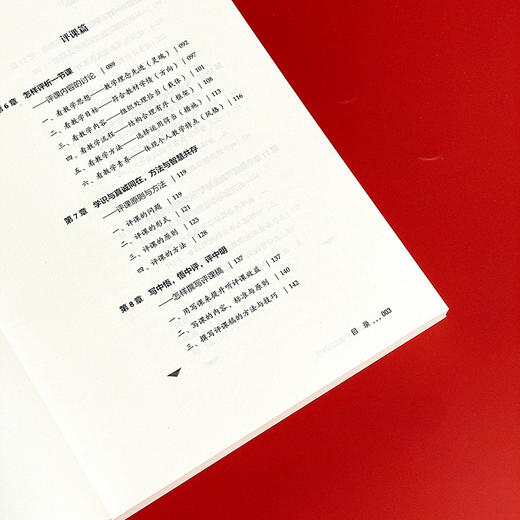 评课篇
第6章 怎样评析一节课
——评课内容的讨论 | 089
一、看教学思想——教学理念先进（灵魂） | 092
二、看教学目标——符合教材学情（方向） | 097
三、看教学内容——组织处理恰当（载体） | 101
四、看教学流程——结构合理有序（框架） | 108
五、看教学方法——选择运用得当（措施） | 113
六、看教学素养——体现个人教学特点（风格） | 116
第7章 学识与真诚同在，方法与智慧共存
——评课原则与方法 | 119
一、评课的问题 | 119
二、评课的形式 | 121
三、评课的原则 | 125
四、评课的方法 | 128
第8章 写中悟，悟中评，评中明
——怎样撰写评课稿 | 137
一、用写课来提升听评课效益 | 137
二、写课的内容、标准与原则 | 140
三、撰写评课稿的方法与技巧 | 142
目录...003